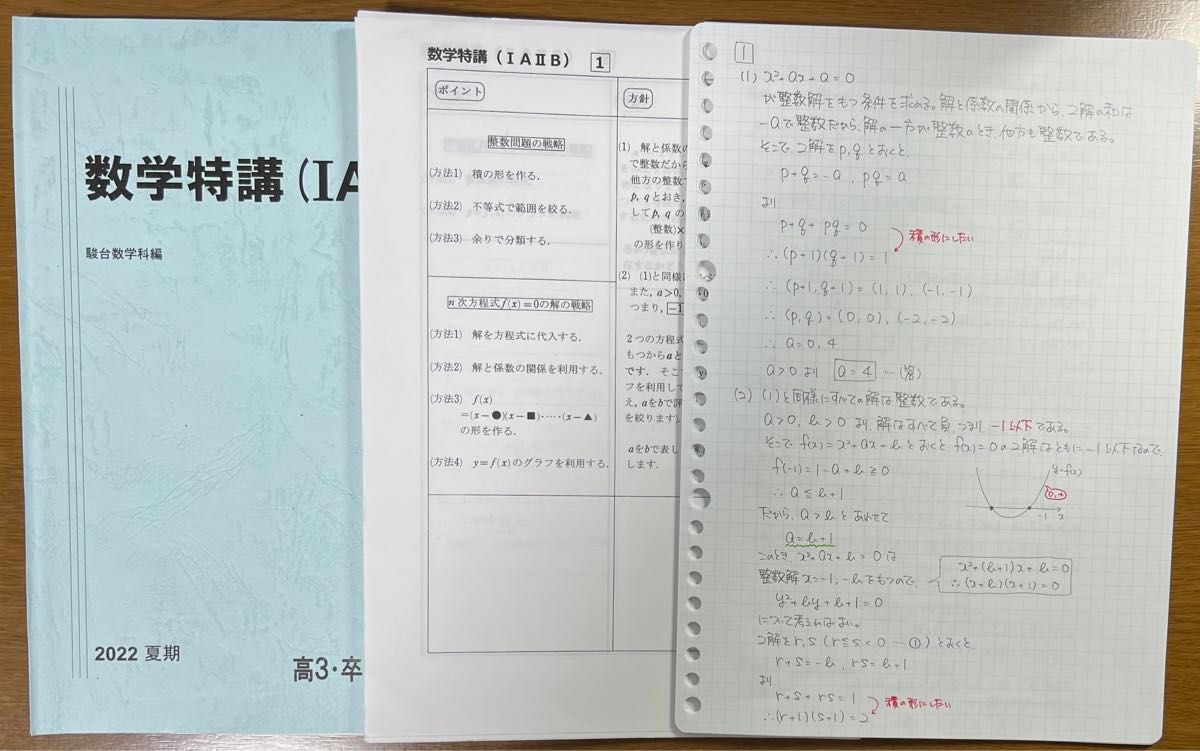 数学特講(IA
駿台数学科編
2022 夏期
高3・卒
数学特講(ⅠAⅡB) 1
ポイント
整数問題の戦略
(方法1) 積の形を作る.
(方法2) 不等式で範囲を絞る.
(方法3) 余りで分類する.
n次方程式f(x)=0の解の戦略
(方法1) 解を方程式に代入する.
(方法2) 解と係数の関係を利用する.
(方法3) f(x)
=(x-●)(x-■)·····(x-▲)
の形を作る.
(方法4) y=f(x)のグラフを利用する.
方針
(1) 解と係数の
で整数だから
他方の整数
p, qとおき,
してp, qの
(整数)×
の形を作り
(2) (1)と同様
また, a>0,
つまり, -1
2つの方程式
もつからaと
です. そこ
フを利用して
え, aをbで評
を絞ります
aをbで表し
します.
1
(1) x²+ax+a=0
が整数解をもつ条件を求める。解と係数の関係から、2解の和は
-aで整数だから、解の一方が整数のとき、他方も整数である。
そこで、2解をp,qとおくと、
p+q=-a, pq=a
より
p+q+pq=0
積の形にしたい
∴(p+1)(q+1)=1
∴(p+1,q+1)=(1,1),(-1,-1)
∴(p,q)=(0,0),(-2,-2)
∴a=0,4
a>0より a=4 …(答)
(2) (1)と同様にすべての解は整数である。
a>0, b>0より、解はすべて負、つまり、-1以下である。
そこで、f(x)=x²+ax+bとおくと、f(x)=0の2解はともに-1以下なので、
f(-1)=1-a+b≧0
∴a≦b+1
y=f(x)
0,+
-1 x
だから、a>bとあわせて
a=b+1
このとき x²+ax+b=0は
x²+(b+1)x+b=0
∴(x+b)(x+1)=0
整数解x=-1,-bをもつので、
y²+by+b+1=0
について考えればよい。
2解をr,s (r≦s<0 …①)とおくと、
r+s=-b, rs=b+1
より
r+s+rs=1
積の形にしたい
∴(r+1)(s+1)=2